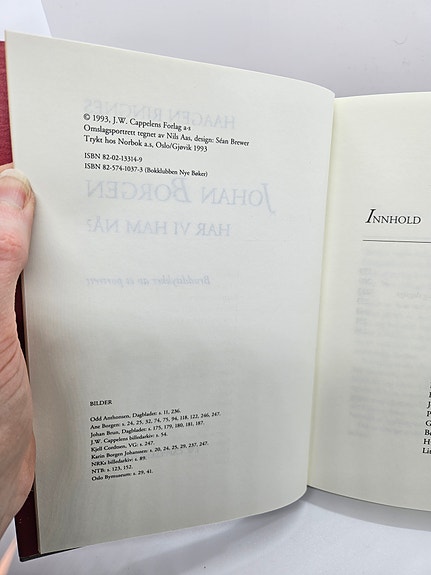 © 1993, J.W. Cappelens Forlag a·s
Omslagsportrett tegnet av Nils Aas, design: Séan Brewer
Trykt hos Norbok a.s, Oslo/Gjøvik 1993
ISBN 82-02-13314-9
ISBN 82-574-1037-3 (Bokklubben Nye Bøker)
HAAGEN RINGNES
JOHAN BORGEN
HAR VI HAM NÅ?
Bruddstykker av et portrett
BILDER
Odd Anthonsen, Dagbladet: s. 11, 236.
Ane Borgen: s. 24, 25, 32, 74, 75, 94, 118, 122, 246, 247.
Johan Brun, Dagbladet: s. 175, 179, 180, 181, 187.
J.W. Cappelens billedarkiv: s. 54.
Kjell Gordtsen, VG: s. 247.
Karin Borgen Johansen: s. 20, 24, 25, 29, 237, 247.
NRKs billedarkiv: s. 89.
NTB: s. 123, 152.
Oslo Bymuseum: s. 29, 41.
INNHOLD